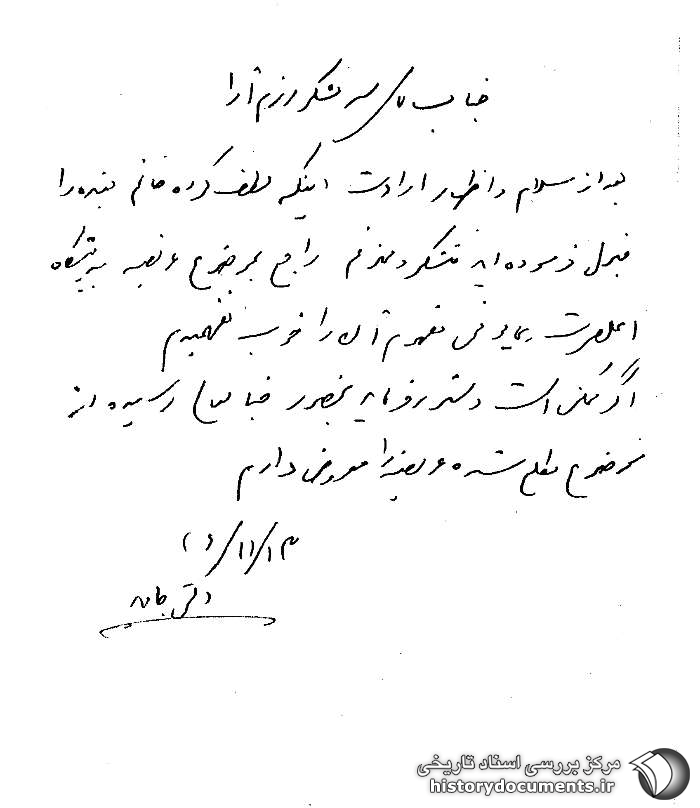 جناب سرلشکر رزم آرا
بعد از سلام و اظهار ارادت اینکه لطف کرده خانم بنده را
قبول فرموده اید متشکر و ممنونم راجع بموضوع عریضه به پیشگاه
اعلیحضرت همایونی مفهوم آن را خوب نفهمیدم
اگر ممکن است دستور فرمایید بحضور جنابعالی رسیده از
موضوع مطلع شده عریضه را معروض دارم
مرکز بررسی اسناد تاریخی
historydocuments.ir